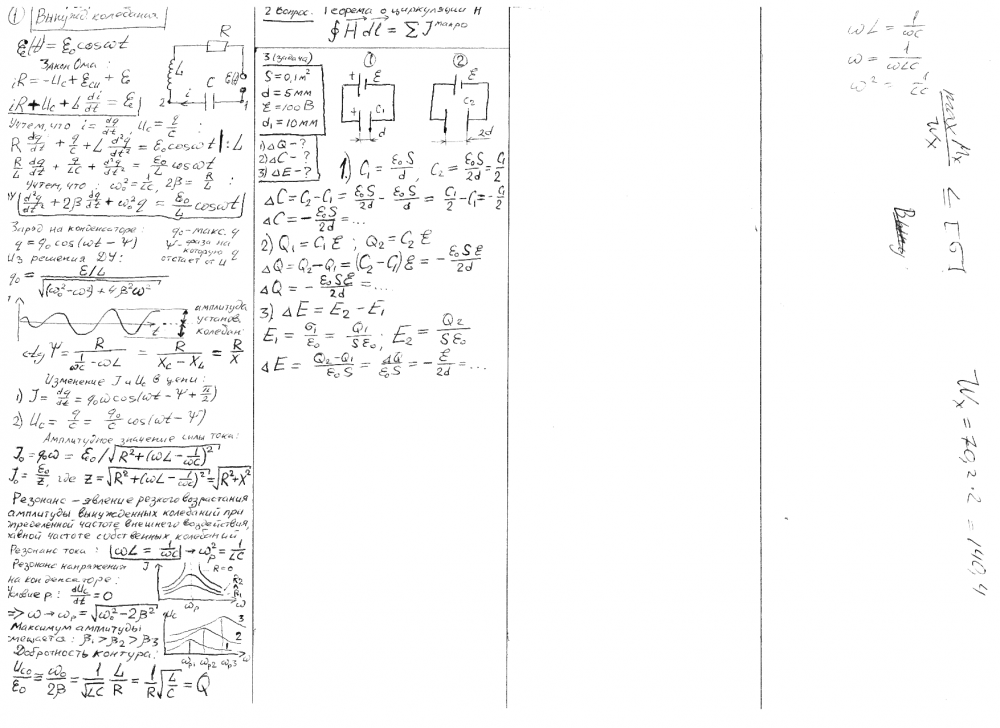 ① Вынужд. колебания
ℰ(t) = ℰ₀ cos ωt
Закон Ома:
iR = -U_C + ℰ_си + ℰ
iR + U_C + L di/dt = ℰ
R
L
C
ℰ(t)
2
i
1
Учтем, что i = dq/dt, U_C = q/C :
R dq/dt + q/C + L d²q/dt² = ℰ₀ cos ωt | : L
R/L dq/dt + q/LC + d²q/dt² = ℰ₀/L cos ωt
Учтем, что: ω₀² = 1/LC, 2β = R/L :
ДУ d²q/dt² + 2β dq/dt + ω₀² q = ℰ₀/L cos ωt
Заряд на конденсаторе:
q = q₀ cos(ωt - Ψ)
q₀ - макс. q
Ψ - фаза на которую отстает от U q
Из решения ДУ:
q₀ = ℰ/L / √((ω₀² - ω²) + 4β²ω²)
амплитуда
установ.
колебан.
t
ctg Ψ = R / (1/ωC - ωL) = R / (X_C - X_L) = R/X
Изменение J и U_C в цепи:
1) J = dq/dt = q₀ω cos(ωt - Ψ + π/2)
2) U_C = q/C = q₀/C cos(ωt - Ψ)
Амплитудное значение силы тока:
J₀ = q₀ω = ℰ₀ / √(R² + (ωL - 1/ωC)²)
J₀ = ℰ₀/Z, где Z = √(R² + (ωL - 1/ωC)²) = √(R² + X²)
Резонанс - явление резкого возрастания
амплитуды вынужденных колебаний при
определенной частоте внешнего воздействия,
равной частоте собственных колебаний
Резонанс тока : ωL = 1/ωC → ω_p² = 1/LC
Резонанс напряжения
на конденсаторе:
J
R=0
R2
R1
ω_p
ω
Условие р: dU_C/dt = 0
=> ω → ω_p = √(ω₀² - 2β²)
Максимум амплитуды
смещается: β₁ > β₂ > β₃
U_C
3
2
1
ω_p1 ω_p2 ω_p3 ω
Добротность контура:
U_C0/ℰ₀ = ω₀/2β = 1/√LC · L/R = 1/R √(L/C) = Q
2 Вопрос. Теорема о циркуляции H
∮ H dl = ∑ J макро
3 (задача)
S = 0,1 м²
d = 5 мм
ℰ = 100 В
d₁ = 10 мм
1) ΔQ - ?
2) ΔC - ?
3) ΔE - ?
①
+ ℰ
+ C₁
d
②
ℰ
C₂
2d
1.) C₁ = ε₀S/d, C₂ = ε₀S/2d = C₁/2
ΔC = C₂ - C₁ = ε₀S/2d - ε₀S/d = C₁/2 - C₁ = -C₁/2
ΔC = - ε₀S/2d = ...
2) Q₁ = C₁ℰ ; Q₂ = C₂ℰ
ΔQ = Q₂ - Q₁ = (C₂ - C₁)ℰ = - ε₀Sℰ/2d
ΔQ = - ε₀Sℰ/2d = ...
3) ΔE = E₂ - E₁
E₁ = σ₁/ε₀ = Q₁/Sε₀ ; E₂ = Q₂/Sε₀
ΔE = (Q₂ - Q₁)/ε₀S = ΔQ/ε₀S = - ℰ/2d = ...
ωL = 1/ωC
ω = 1/ωLC
ω² = 1/LC
W_x = 70,2 · 2 = 140,4